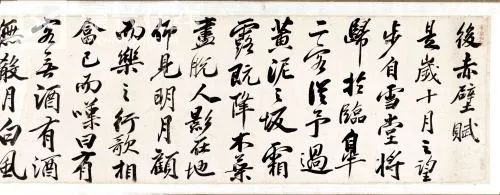 後赤壁賦
是歲十月之望
步自雪堂將
歸於臨皋
二客從予過
黃泥之坂霜
露既降木葉
盡脫人影在地
仰見明月顧
而樂之行歌相
畣已而嘆曰有
客無酒有酒
無殽月白風